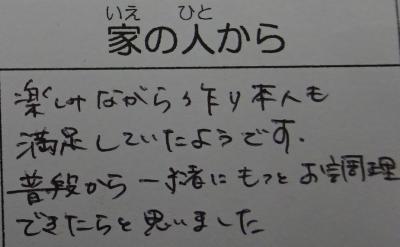 いえ ひと
家の人から
楽しみながら作り本人も
満足していたようです.
普段から一緒にもっとお調理
できたらと思いました